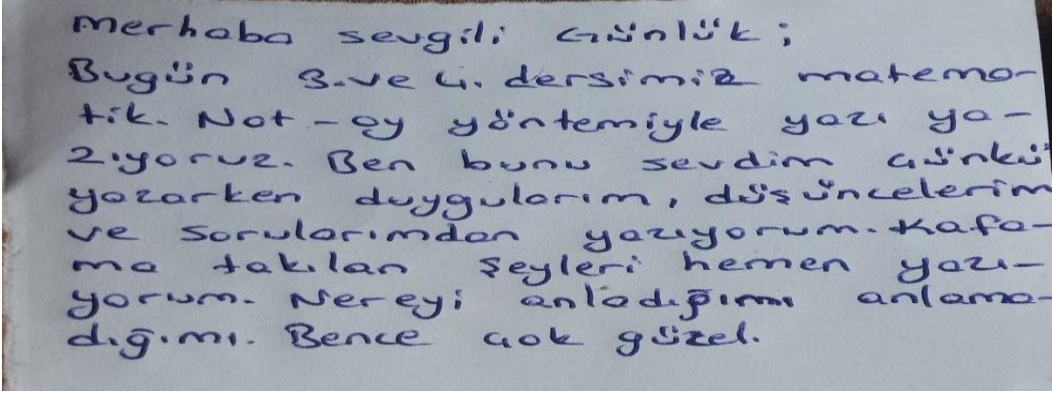 Merhaba sevgili Günlük;
Bugün 3. ve 4. dersimiz matema-
tik. Not-ay yöntemiyle yazı ya-
zıyoruz. Ben bunu sevdim çünkü
yazarken duygularım, düşüncelerim
ve sorularımdan yazıyorum. Kafa-
ma takılan şeyleri hemen yazı-
yorum. Nereyi anladığımı anlama-
dığımı. Bence çok güzel.